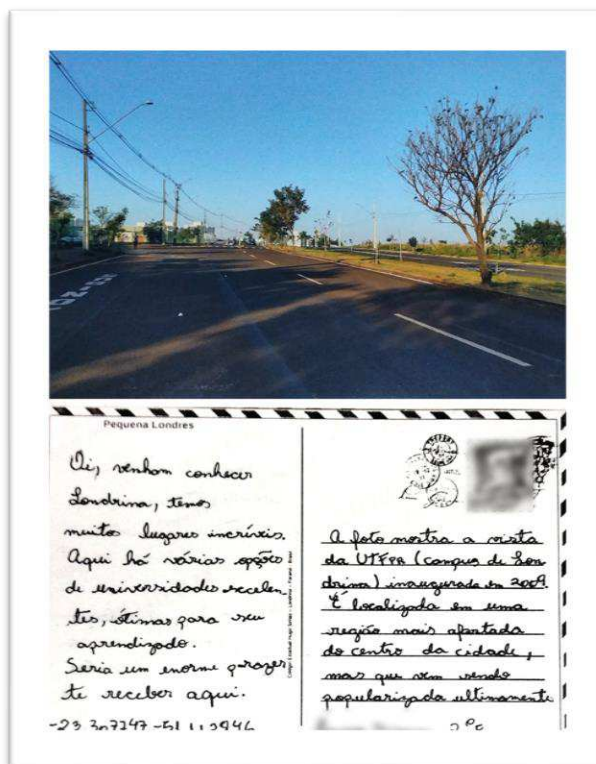 Pequena Londres
Oi, venham conhecer
Londrina, temos
muitos lugares incríveis.
Aqui há várias opções
de universidades excelen-
tes, ótimas para seu
aprendizado.
Seria um enorme prazer
te receber aqui.
Colégio Estadual Hugo Simas - Londrina - Paraná - Brasil
A foto mostra a vista
da UTFPR (campus de Lon
drina) inaugurada em 2009.
É localizada em uma
região mais afastada
do centro da cidade,
mas que vem sendo
popularizada ultimamente